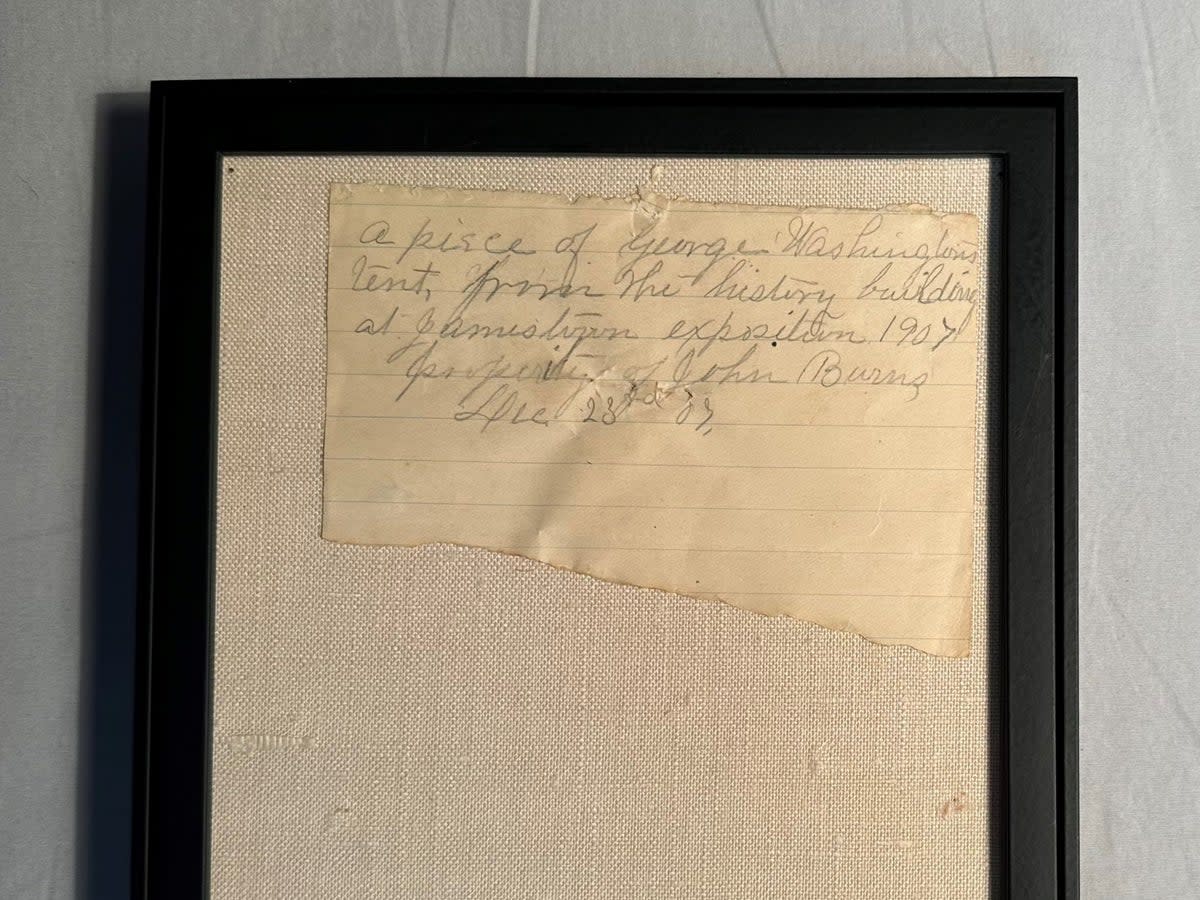 a piece of George Washingtons
tent, from the history building
at Jamestown exposition 1907
property of John Burns
Dec 23rd 07,